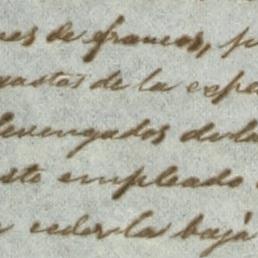 nes de francos, p
gastos de la expo
devengados de la
esto empleado
ceder la baja